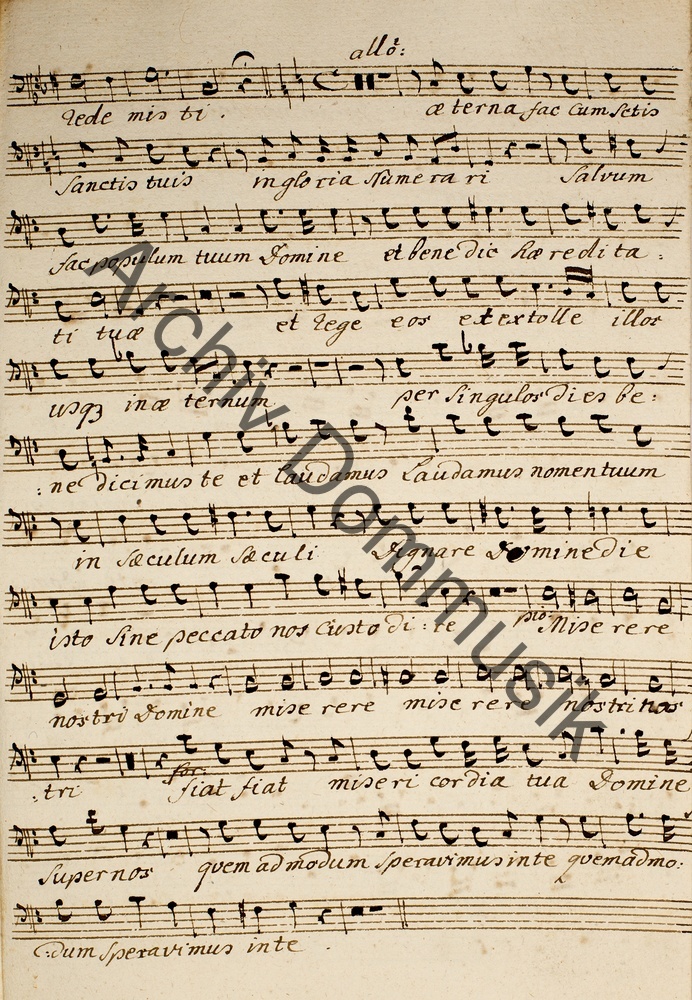 allo:
rede mis ti . æ terna fac cum Sctis
Sanctis tuis in glo ria Nume ra ri Salvum
fac populum tuum Domine et bene dic hæ redi ta :
ti tuæ et rege eos et extolle illos
usq3 in æ ternum per singulos dies be :
: ne dicimus te et laudamus Laudamus nomen tuum
in Sæculum Sæculi Dignare Domine die
isto sine peccato nos custo di : re pio Mise re re
nostri Domine mise rere mise re re nostri nos
: tri for: fiat fiat miseri cordia tua Domine
Super nos quem ad modum speravimus in te quem admo :
: dum speravimus in te .
Archiv Dommusik